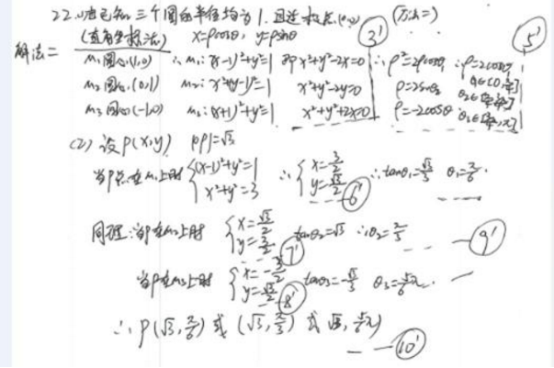 22.(1)由已知三个圆的半径均为1,且过极点(0,0) (方法二)
解法二 (直角坐标法) x=ρcosθ, y=ρsinθ 3' 5'
M₁圆心(1,0) ∴M₁:(x-1)²+y²=1 即x²+y²-2x=0 ∴ρ²=2ρcosθ, ∴ρ=2cosθ, θ₁∈[0,π/4]
M₂圆心(0,1) M₂:x²+(y-1)²=1 x²+y²-2y=0 ρ=2sinθ θ₂∈[π/4,3π/4]
M₃圆心(-1,0) M₃:(x+1)²+y²=1 x²+y²+2x=0 ρ=-2cosθ θ₃∈[3π/4,π]
(2) 设P(x,y) |OP|=√3
当P点在M₁上时 {(x-1)²+y²=1 x²+y²=3 ∴ {x=3/2 y=√3/2 6' ∴tanθ₁=√3/3 θ₁=π/6
同理:当P在M₂上时 {x=√3/2 y=3/2 7' tanθ₂=√3 ∴θ₂=π/3 9'
当P在M₃上时 {x=-3/2 y=√3/2 8' tanθ₃=-√3/3 θ₃=5/6π
∴P(√3,π/6) 或 (√3,π/3) 或 (√3,5/6π)
10'